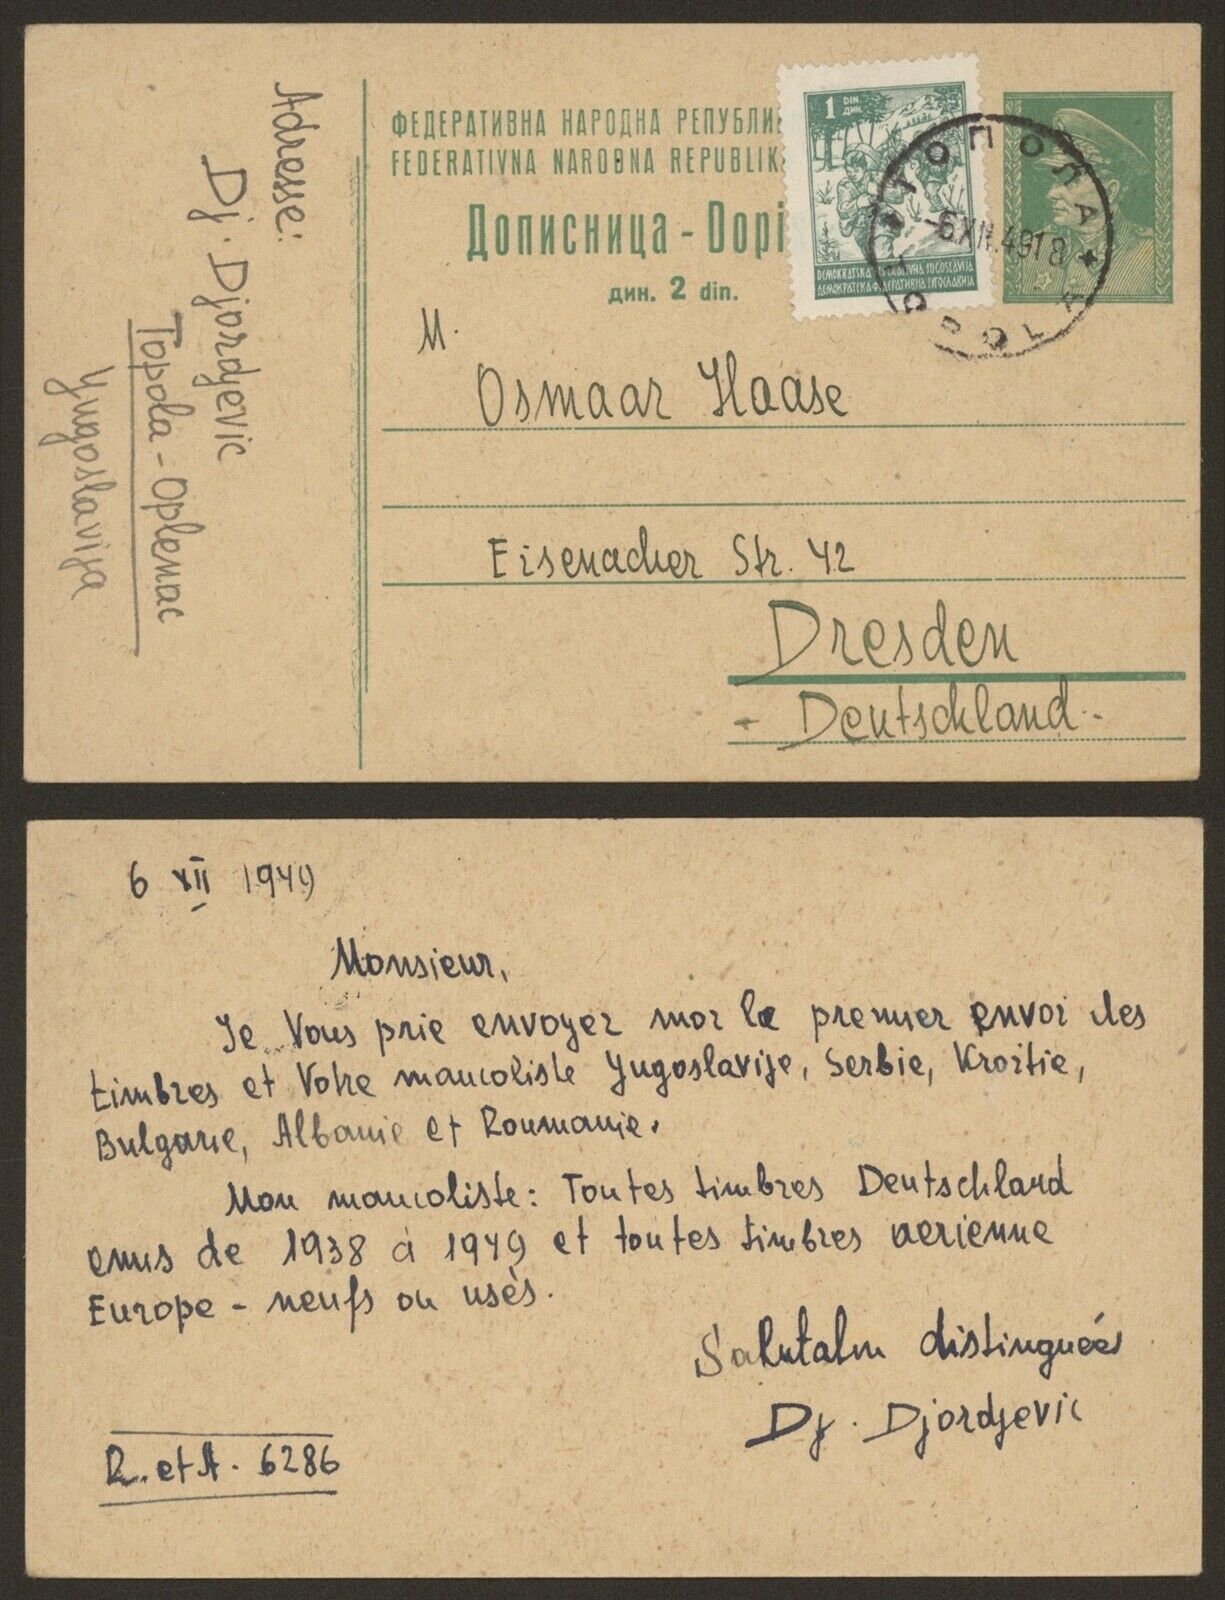 Adresse:
Dj. Djordjevic
Topola - Oplenac
Yugoslavija
ФЕДЕРАТИВНА НАРОДНА РЕПУБЛИ
FEDERATIVNA NARODNA REPUBLIK
Дописница - Dopi
дин. 2 din.
1 DIN.
ДИН.
DEMOKRATSKA FEDERATIVNA JUGOSLAVIJA
ДЕМОКРАТСКА ФЕДЕРАТИВНА ЈУГОСЛАВИЈА
ТОПОЛА
-6.XII.49 18
TOPOLA
M.
Osmaar Haase
Eisenacher Str. 42
Dresden
- Deutschland -
6 XII 1949
Monsieur,
Je Vous prie envoyer moi le premier envoi des
timbres et Votre mancoliste Yugoslavije, Serbie, Kroitie,
Bulgarie, Albanie et Roumanie.
Mon mancoliste: Toutes timbres Deutschland
emis de 1938 à 1949 et toutes timbres aerienne
Europe - neufs ou usès.
distinguées
Dj. Djordjevic
R. et A. 6286